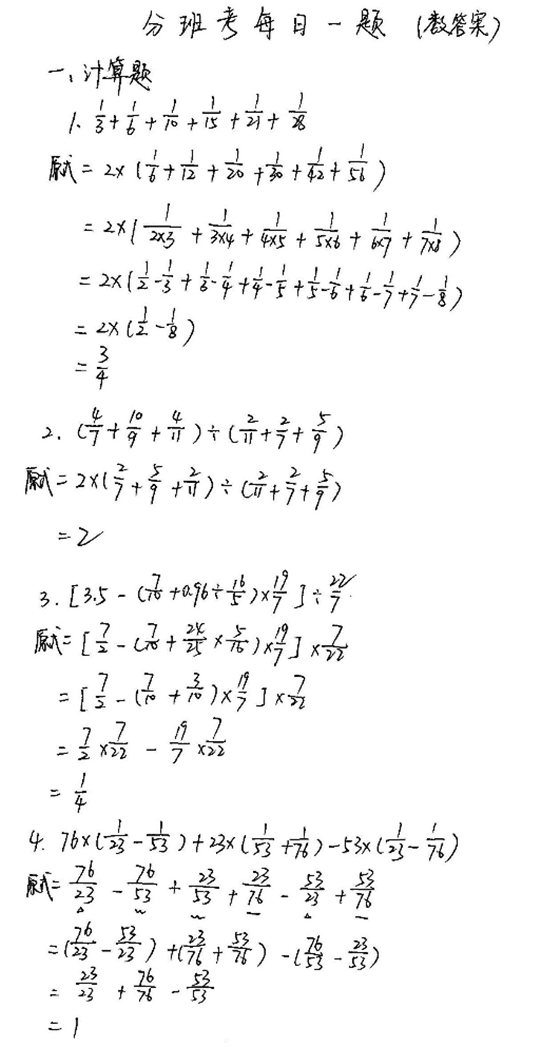 分班考每日一题（数答案）
一、计算题
1. 1/3+1/6+1/10+1/15+1/21+1/28
原式=2×(1/6+1/12+1/20+1/30+1/42+1/56)
=2×(1/2×3+1/3×4+1/4×5+1/5×6+1/6×7+1/7×8)
=2×(1/2-1/3+1/3-1/4+1/4-1/5+1/5-1/6+1/6-1/7+1/7-1/8)
=2×(1/2-1/8)
=3/4
2. (4/7+10/9+4/11)÷(2/11+2/7+5/9)
原式=2×(2/7+5/9+2/11)÷(2/11+2/7+5/9)
=2
3. [3.5-(7/10+0.96÷16/5)×19/7]÷22/7
原式=[7/2-(7/10+24/25×5/16)×19/7]×7/22
=[7/2-(7/10+3/10)×19/7]×7/22
=7/2×7/22-19/7×7/22
=1/4
4. 76×(1/23-1/53)+23×(1/53+1/76)-53×(1/23-1/76)
原式=76/23-76/53+23/53+23/76-53/23+53/76
=(76/23-53/23)+(23/76+53/76)-(76/53-23/53)
=23/23+76/76-53/53
=1